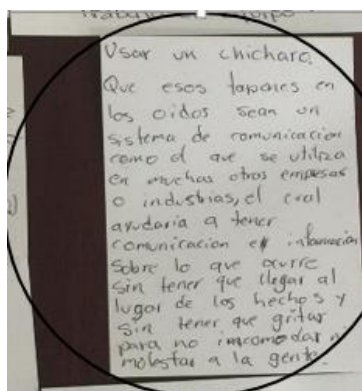 Trabajo en equipo
Usar un chicharo.
Que esos tapones en
los oidos sean un
sistema de comunicacion
como el que se utiliza
en muchas otras empresas
o industrias, el cual
ayudaria a tener
comunicacion e informacion
sobre lo que ocurre
sin tener que llegar al
lugar de los hechos y
sin tener que gritar
para no incomodar ni
molestar a la gente.